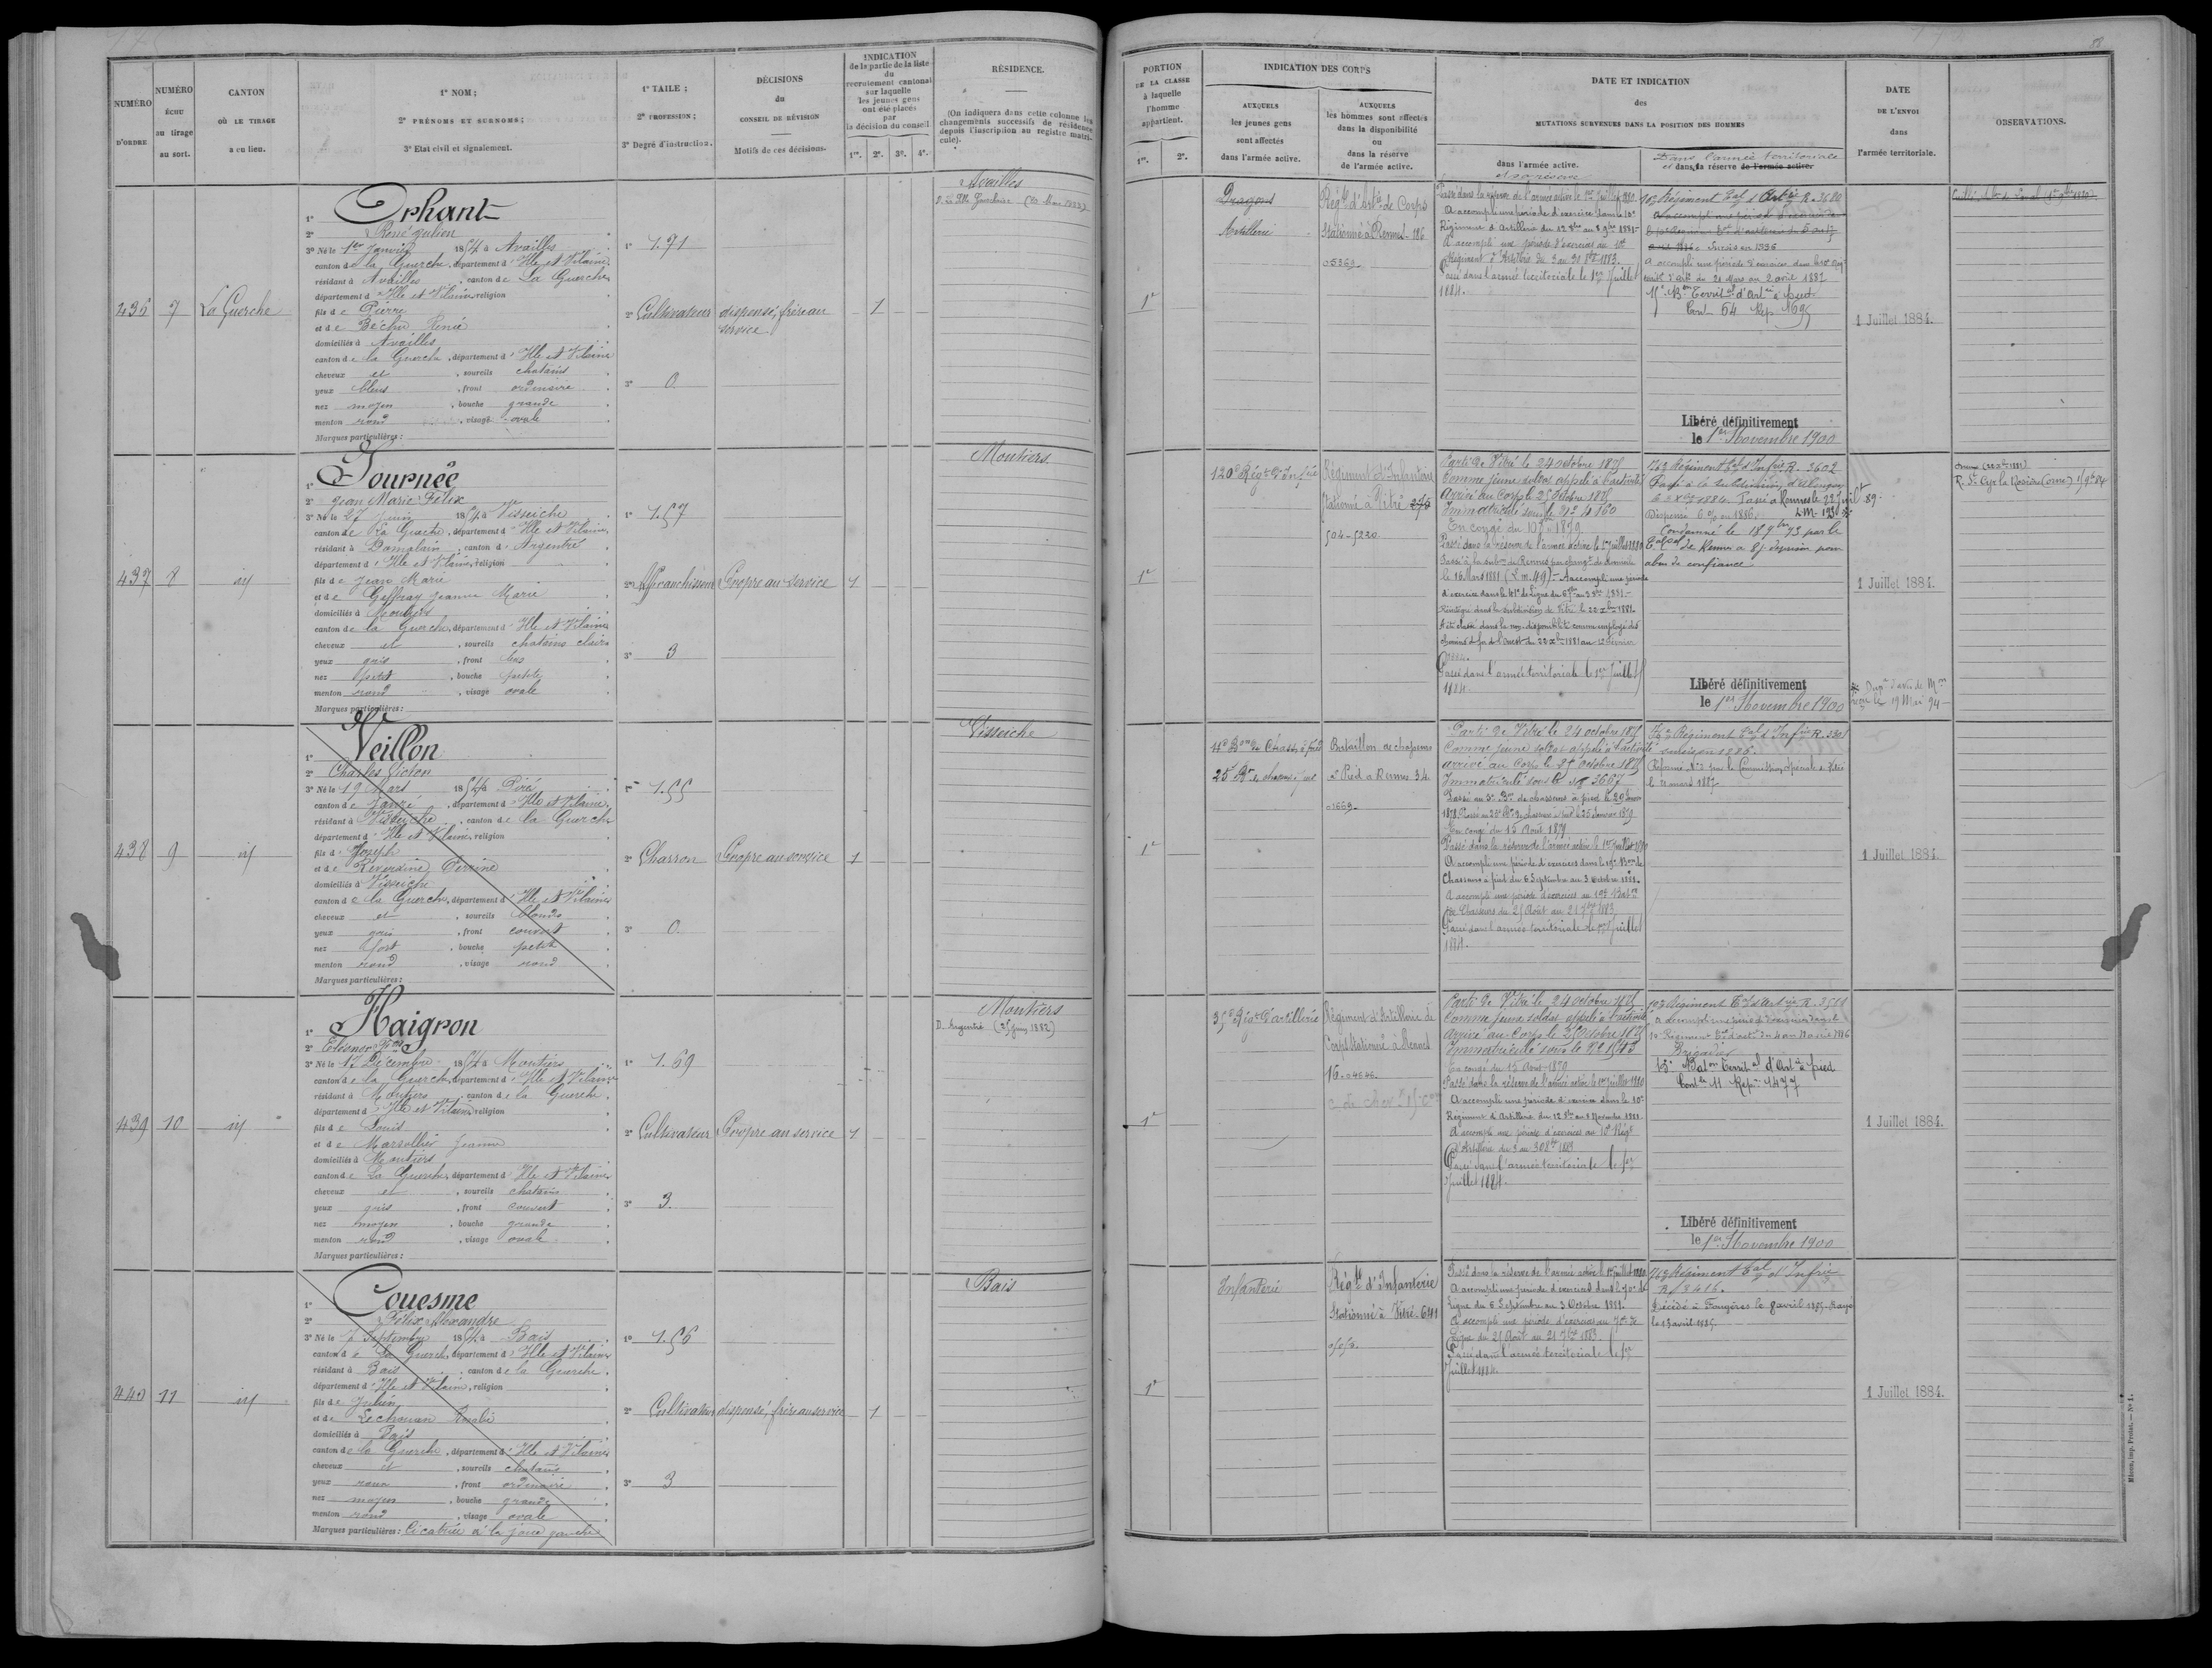 NUMÉRO
D'ORDRE
NUMÉRO
ÉCHU
au tirage
au sort.
CANTON
OÙ LE TIRAGE
a eu lieu.
1° NOM ;
2° PRÉNOMS ET SURNOMS ;
3° Etat civil et signalement.
1° TAILE ;
2° PROFESSION ;
3° Degré d'instruction.
DÉCISIONS
du
CONSEIL DE RÉVISION
Motifs de ces décisions.
INDICATION
de la partie de la liste
du
recrutement cantonal
sur laquelle
les jeunes gens
ont été placés
par
la décision du conseil.
1re. 2e. 3e. 4e.
RÉSIDENCE.
(On indiquera dans cette colonne les
changements successifs de résidence
depuis l'inscription au registre matri-
cule).
PORTION
DE LA CLASSE
à laquelle
l'homme
appartient.
1re. 2e.
INDICATION DES CORPS
AUXQUELS
les jeunes gens
sont affectés
dans l'armée active.
AUXQUELS
les hommes sont affectés
dans la disponibilité
ou
dans la réserve
de l'armée active.
DATE ET INDICATION
des
MUTATIONS SURVENUES DANS LA POSITION DES HOMMES
dans l'armée active.
et sa réserve
Dans l'armée territoriale
et dans sa réserve de l'armée active.
DATE
DE L'ENVOI
dans
l'armée territoriale.
OBSERVATIONS.
436
7
La Guerche
1° Orphant
2° René Julien
3° Né le 1er Janvier 1854 à Availles
canton de la Guerche, département d'Ille et Vilaine,
résidant à Availles, canton de La Guerche
département d'Ille et Vilaine, religion
fils de Pierre
et de Béchu Renée
domiciliés à Availles
canton de la Guerche, département d'Ille et Vilaine
cheveux et, sourcils chatains
yeux bleus, front ordinaire
nez moyen, bouche grande
menton rond, visage ovale
Marques particulières :
1° 1.71
2° Cultivateur
3° 0
dispensé, frère au
service
1
Availles
1e
Dragons
Artillerie
Régt d'Artie de Corps
Stationné à Rennes 186
05369
Passé dans la réserve de l'armée active le 1er Juillet 1880
A accompli une période d'exercices dans le 10e
Régiment d'Artillerie du 12 8bre au 8 9bre 1881
A accompli une période d'exercices au 10e
Régiment d'Artillerie du 3 au 30 8bre 1883.
Passé dans l'armée territoriale le 1er Juillet
1884.
10e Régiment Tal d'Artie R. 3680
A accompli une période d'exercices dans le 10e Régt
territ. d'artie du 21 Mars au 2 avril 1887
15e Bon Territal d'Artie à pied
Cont 54 Rép 1695
Libéré définitivement
le 1er Novembre 1900
1 Juillet 1884.
437
8
id
1° Journée
2° Jean Marie Félix
3° Né le 27 Juin 1854 à Visseiche
canton de La Guerche, département d'Ille et Vilaine,
résidant à Domalain, canton d'Argentré
département d'Ille et Vilaine, religion
fils de Jean Marie
et de Geffray Jeanne Marie
domiciliés à Moutiers
canton de la Guerche, département d'Ille et Vilaine
cheveux et, sourcils chatains clairs
yeux gris, front bas
nez petit, bouche petite
menton rond, visage ovale
Marques particulières :
1° 1.57
3° 3
Propre au service
1
Moutiers
1e
120e Régt d'Infrie
Régiment d'Infanterie
Stationné à Vitré
504-5220
Parti de Vitré le 24 octobre 1875
Comme jeune soldat appelé à l'activité
Arrivé au Corps le 25 Octobre 1875
Immatriculé sous le No 4160
Passé dans la réserve de l'armée active le 1er Juillet 1880
Passé à la subon de Rennes par changt de domicile
le 16 Mars 1881 (L.m. 49) - A accompli une période
d'exercice dans le 41e de Ligne du 6 7bre au 3 8bre 1881.
Réintégré dans la subdivision de Vitré le 22 Xbre 1881
A été classé dans la non-disponibilité comme employé des
chemins de fer de l'Ouest du 22 Xbre 1881 au 12 Février
1884.
Passé dans l'armée territoriale le 1er Juillet
1884.
76e Régiment Tal d'Infrie R. 3602
Passé à la subdivision d'Alençon
le 2 Xbre 1884. Passé à Rennes le 22 Juillet 89.
Condamné le 18 9bre 93 par le
abus de confiance
Libéré définitivement
le 1er Novembre 1900
1 Juillet 1884.
R. St Cyr la Rosière (Orne)
438
9
id
1° Veillon
2° Charles Victor
3° Né le 19 Mars 1854 à Piré
canton de Janzé, département d'Ille et Vilaine,
résidant à Visseiche, canton de la Guerche
département d'Ille et Vilaine, religion
fils de Joseph
domiciliés à Visseiche
canton de la Guerche, département d'Ille et Vilaine
cheveux et, sourcils blonds
yeux gris, front couvert
nez fort, bouche petite
menton rond, visage rond
Marques particulières :
1° 1.55
2° Charron
3° 0
Propre au service
1
Visseiche
1e
25e Bn de chasseurs à pied
Bataillon de chasseurs
à Pied à Rennes 34
01669
Parti de Vitré le 24 octobre 1875
Comme jeune soldat appelé à l'activité
arrivé au Corps le 27 Octobre 1875
Immatriculé sous le No 3667
En congé du 15 Août 1879
Passé dans la réserve de l'armée active le 1er Juillet 1880
A accompli une période d'exercices dans le 19e Bon de
Chasseurs à pied du 6 Septembre au 3 Octobre 1881.
A accompli une période d'exercices au 19e Baton
de Chasseurs du 25 Août au 21 7bre 1883
Passé dans l'armée territoriale le 1er Juillet
1884.
1 Juillet 1884.
439
10
id
1° Haigron
2° Eléonor Fois
3° Né le 17 Décembre 1854 à Moutiers
canton de la Guerche, département d'Ille et Vilaine
résidant à Moutiers, canton de la Guerche
département d'Ille et Vilaine, religion
fils de Louis
et de Marsollier Jeanne
domiciliés à Moutiers
canton de La Guerche, département d'Ille et Vilaine
cheveux et, sourcils chatains
yeux gris, front couvert
nez moyen, bouche grande
menton rond, visage ovale
Marques particulières :
1° 1.69
2° Cultivateur
3° 3
Propre au service
1
Moutiers
D. Argentré (25 Juin 1882)
1e
35e Régt d'artillerie
Régiment d'Artillerie de
Corps Stationné à Rennes
16. 04646.
Parti de Vitré le 24 octobre 1875
Comme jeune soldat appelé à l'activité
Arrivé au Corps le 25 Octobre 1875
Immatriculé sous le No 1543
Passé dans la réserve de l'armée active le 1er Juillet 1880
A accompli une période d'exercices dans le 10e
Régiment d'Artillerie du 12 8bre au 8 Novembre 1881
A accompli une période d'exercices au 10e Régt
d'Artillerie du 3 au 30 8bre 1883
Passé dans l'armée territoriale le 1er
Juillet 1884.
Brigadier
15e Baton Territal d'Artie à pied
Contle 11 Répre 1477
Libéré définitivement
le 1er Novembre 1900
1 Juillet 1884.
440
11
id
1° Couesme
2° Félix Alexandre
3° Né le Septembre 1854 à Bais
canton de La Guerche, département d'Ille et Vilaine
résidant à Bais, canton de la Guerche
département d'Ille et Vilaine, religion
fils de Julien
et de Lechouan Rosalie
domiciliés à Bais
canton de la Guerche, département d'Ille et Vilaine
cheveux et, sourcils chatains
yeux roux, front ordinaire
nez moyen, bouche grande
menton rond, visage ovale
Marques particulières : Cicatrice à la joue gauche
1° 1.56
2° Cultivateur
3° 3
dispensé, frère au service
1
Bais
1e
Infanterie
Régt d'Infanterie
Stationné à Vitré
Passé dans la réserve de l'armée active le 1er Juillet 1880
A accompli une période d'exercices dans le 70e de
Ligne du 6 Septembre au 3 Octobre 1881.
A accompli une période d'exercices au 70e de
Ligne du 25 Août au 21 7bre 1883.
Passé dans l'armée territoriale le 1er
Juillet 1884.
76e Régiment Tal d'Infrie
Décédé à Fougères le 8 avril 1885. Rayé
le 13 avril 1885.
1 Juillet 1884.